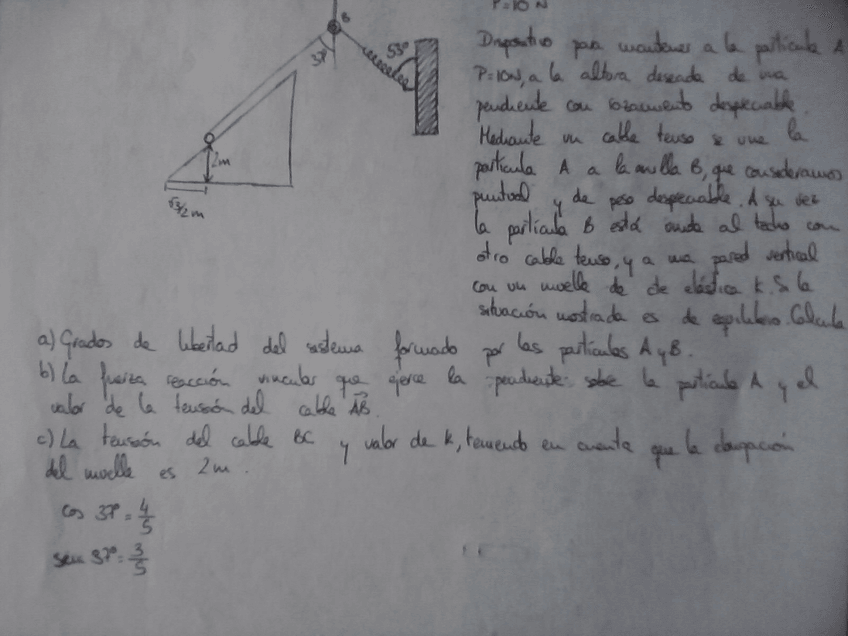 P=10 N
B
37º
53º
2m
√3/2 m
Dispositivo para mantener a la partícula A
P=10N, a la altura deseada de una
pendiente con rozamiento despreciable.
Mediante un cable tenso se une la
partícula A a la anilla B, que consideramos
puntual y de peso despreciable. A su vez
la partícula B está unida al techo con
otro cable tenso, y a una pared vertical
con un muelle de cte elástica k. Si la
situación mostrada es de equilibrio. Calcula
a) Grados de libertad del sistema formado por las partículas A y B.
b) La fuerza reacción vincular que ejerce la pendiente sobre la partícula A y el
valor de la tensión del cable AB.
c) La tensión del cable BC y valor de k, teniendo en cuenta que la elongación
del muelle es 2m.
cos 37º = 4/5
sen 37º = 3/5